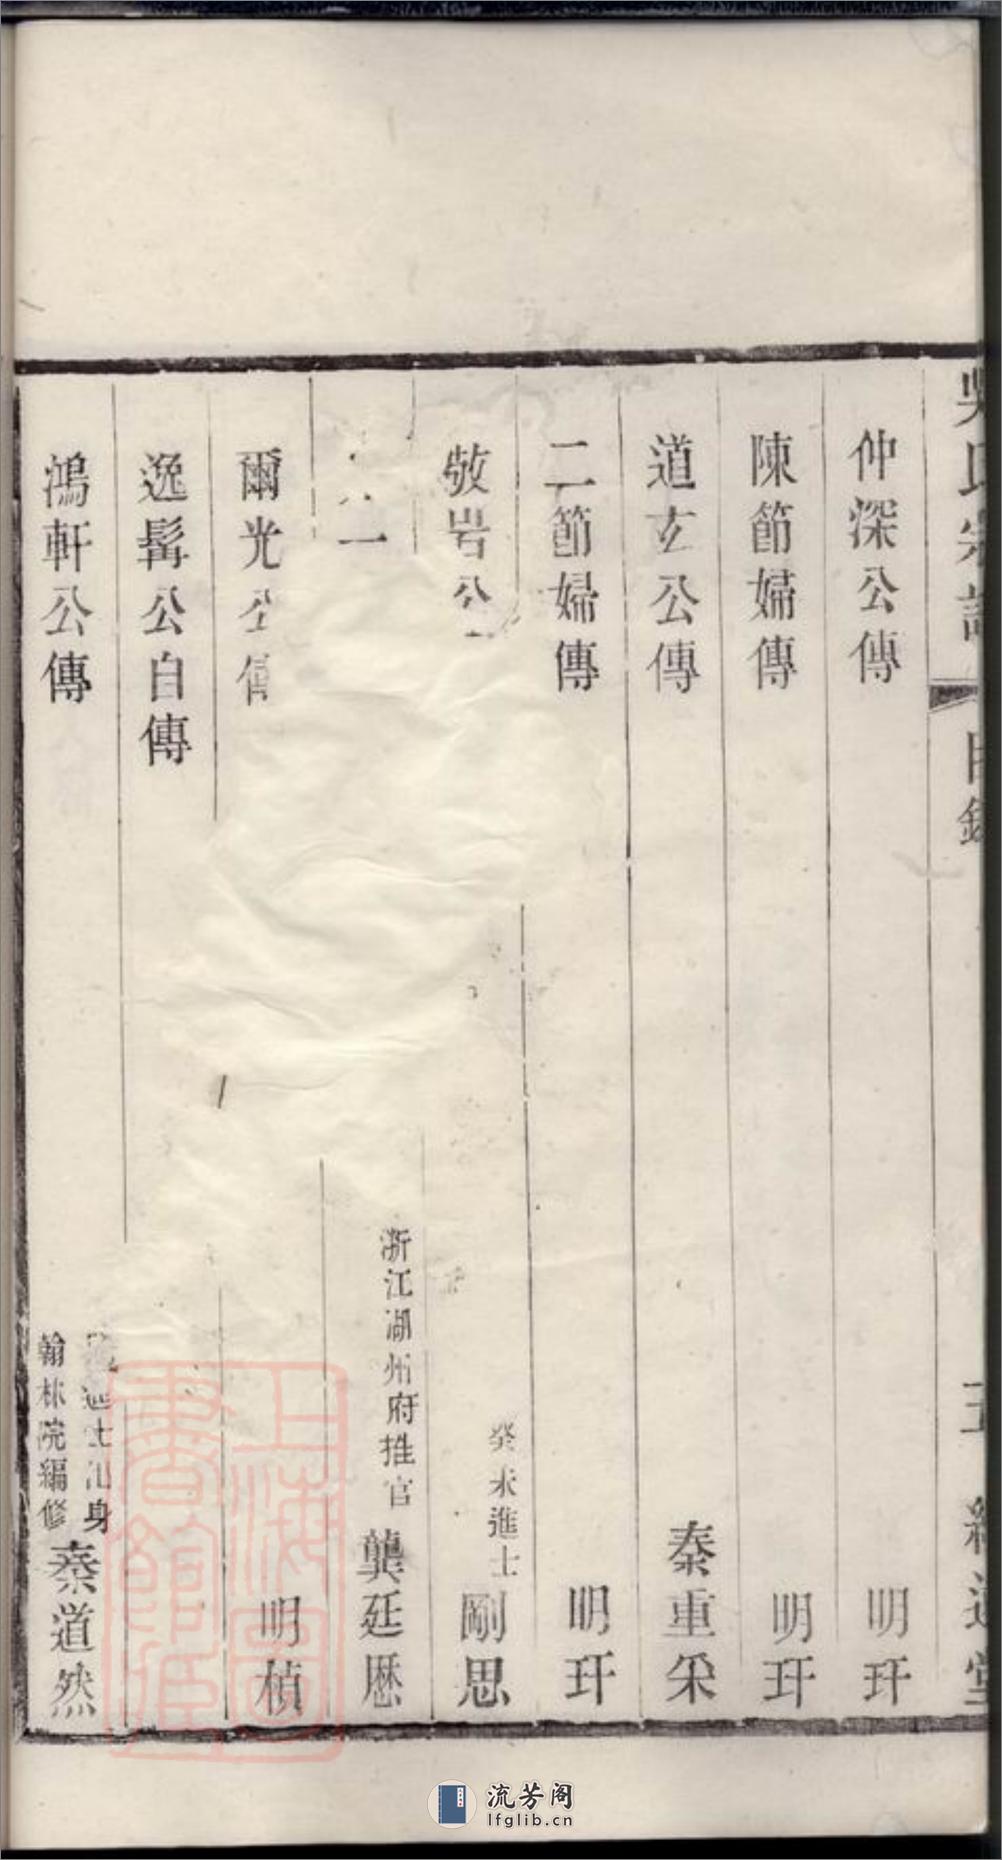 吳氏宗譜 目錄 繩送堂
仲深公傳 明玕
陳節婦傳 明玕
道玄公傳 秦重采
二節婦傳 明玕
敬岩公 癸未進士 剛思
一 浙江湖州府推官 龔廷歷
爾光公傳 明楨
逸髯公自傳
鴻軒公傳 進士出身 翰林院編修 秦道然
上海圖書館藏
流芳阁
lfglib.cn